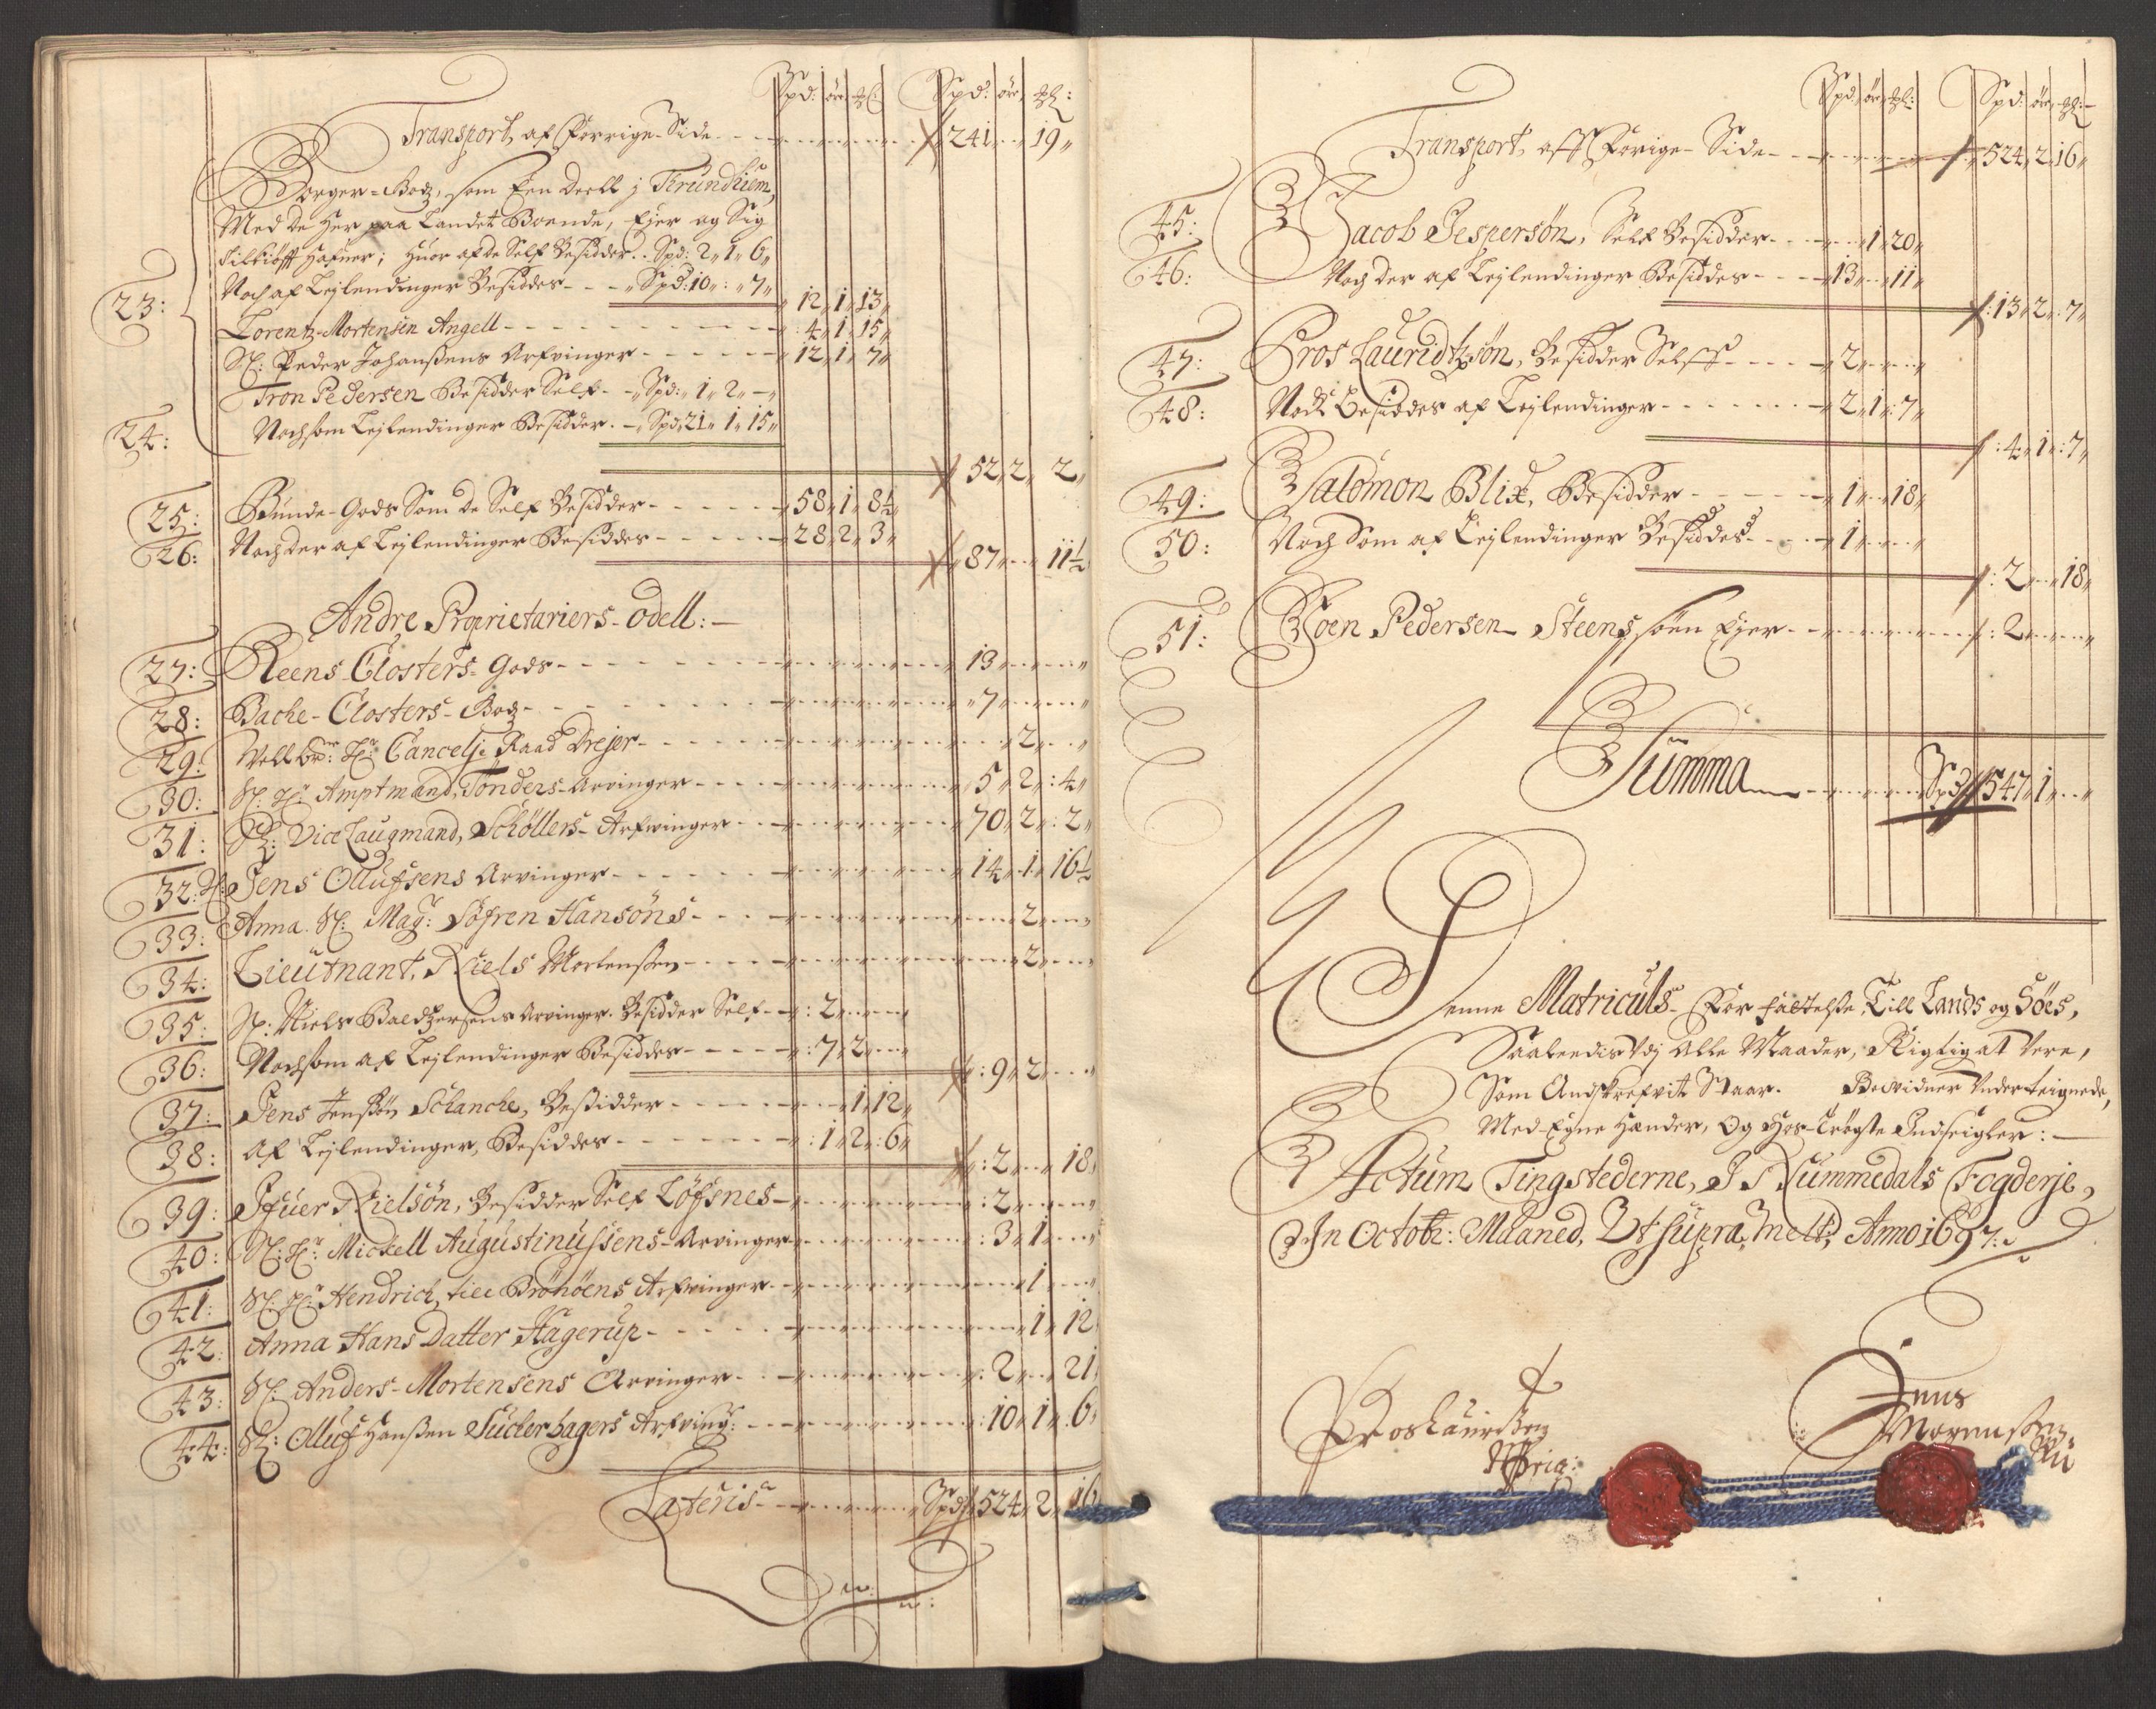 Spd: öre mk: Spd: öre mk:
Transport, af Forrige Side 241 „ 19 „
Borger-Godz, som Een Deell j Trundhiem,
Med de Her paa Landet Boende, Ejer og Sig
Tilkiøfft Hafuer; Huor af de Self Besidder. Spd: 2 „ 1 „ 6 „
23: Noch af Lejlendinger Besiddes Spd: 10 „ : „ 7 „ 12 „ 1 „ 13 „
Lorentz Mortensen Angell 4 „ 1 „ 15 „
Sl: Peder Johanßens Arfvinger 12 „ 1 „ 7 „
Tron Pedersen Besidder Self Spd: „ 1 „ 2 „ – „
24: Noch som Lejlendinger Besidder. Spd: 21 „ 1 „ 15 „
52 „ 2 „ 2 „
25: Bunde-Gods Som de Self Besidder 58 „ 1 „ 8½ „
26: Noch der af Lejlendinger Besiddes 28 „ 2 „ 3 „
87 „ 11½
Andre Proprietariers Odell:
27: Reens Closters Gods 13 „
28: Bache-Closters-Godz 7 „
29: Vellbr: Hr: Cancelje Raad Drejer 2 „
30: Sl: Hr: Amptmand, Tonders Arvinger 5 „ 2 „ : 4 „
31: Sl: Vice Laugmand, Schöllers Arfvinger 70 „ 2 „ : 2 „
32: Sl: Jens Ollufsens Arvinger 14 „ 1 „ 16½
33: Anna Sl: Magr: Söfren Hansöns 2 „
34: Lieutnant, Niels Mortenßen 2 „
35: Sl: Niels Baldtzersens Arvinger. Besidder Self : 2 „
36: Noch som af Lejlendinger Besiddes : 7 „ 2 „
: 9 „ 2 „
37: Jens Jenßön Schanche, Besidder 1 „ 12 „
38: Af Lejlendinger, Besiddes : 1 „ 2 „ : 6 „
: 2 „ 18 „
39: Ifuer Nielsön, Besidder Self Löfsnes : 2 „
40: Sl: Hr: Mickell Augustinussens Arvinger : 3 „ 1 „
41: Sl: Hr: Hendrich, till Brönöens Arfvinger 1 „
42: Anna Hans Datter Hagerup 1 „ 12 „
43: Sl: Anders Mortensens Arvinger : 2 „ 21 „
44: Sl: Olluf Hanßen Suckerbagers Arfving: : 10 „ 1 „ 6 „
Lateris Spd 524 „ 2 „ 16
Spd: öre mk: Spd: öre mk:
Transport, aff Forige Side 524 „ 2 „ 16 „
45: Jacob Jespersön, Self Besidder 1 „ 20 „
46: Noch der af Lejlendinger Besiddes 13 „ 11 „
: 13 „ 2 „ : 7 „
47: Pros Lauridtzön, Besidder Selff 2 „
48: Noch Besiddes af Lejlendinger 2 „ 1 „ : 7 „
: 4 „ 1 „ : 7 „
49: Salomon Blix, Besidder 1 „ 18 „
50: Noch Som af Lejlendinger Besiddes 1 „
: 2 „ 18 „
51: Joen Pedersen Steens söen Ejer : 2 „
Summa Spd 547 „ 1 „
Denne Matriculs For fattelse, Till Lands og Söes,
Saaledis Udj Alle Maader, Rigtig at Vere,
Som Andskrefvit Staar. Bevidner Underteignede,
Med Egne Hænder, Og Hos-Trögte Indseigler:
Actum Tingstederne, I Nummedals Fogderje,
In Octobr: Maaned, Ut supra melt, Anno 1697.
Pros Laurißen
Mpria:
Jens